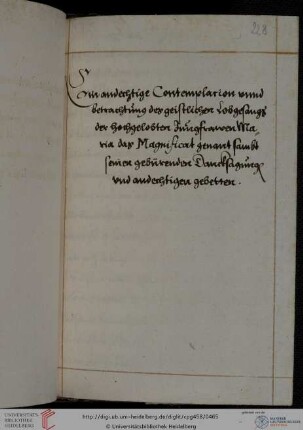 228
Ein andechtige Contemplacion vnnd
betrachtung des geistlichen Lobgesangs
der hochgelobten Jungfrawen Ma„
ria das Magnificat genant sambt
seinen gebürenden Dancksagung
vnd andechtigen gebetten.
UNIVERSITÄTS-
BIBLIOTHEK
HEIDELBERG
http://digi.ub.uni-heidelberg.de/diglit/cpg458/0465
© Universitätsbibliothek Heidelberg